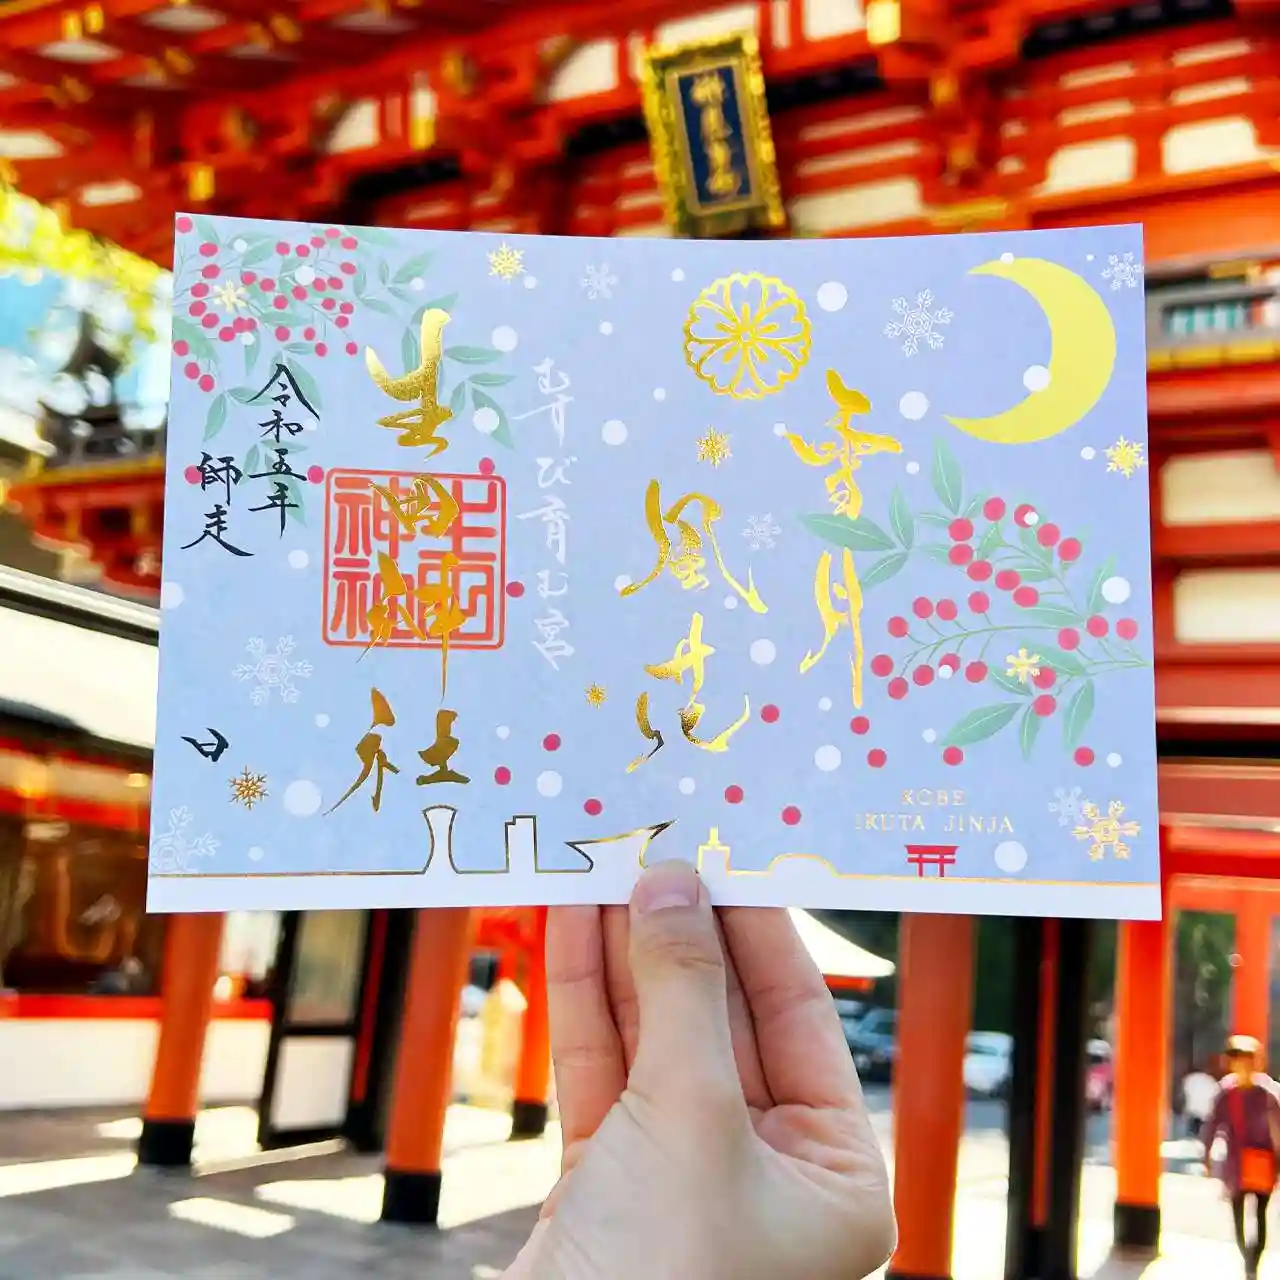 雪月
風花
むすび育む宮
生田神社
生田
神社
令和五年
師走
日
KOBE
IKUTA JINJA